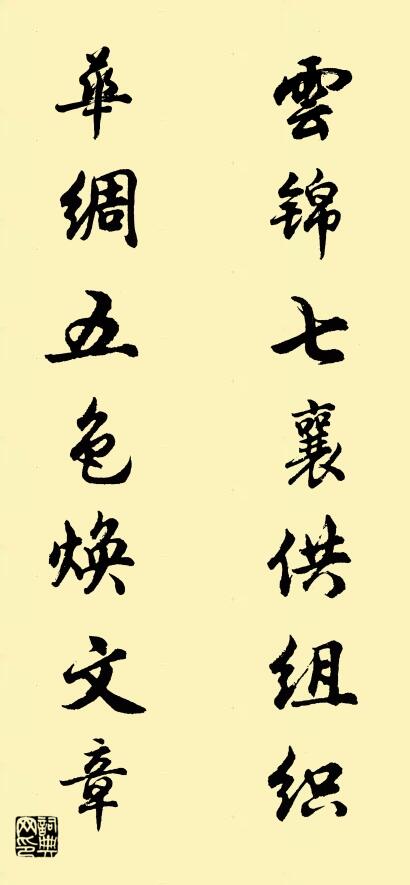 雲锦七襄供组织
華绸五色焕文章
詞典网印